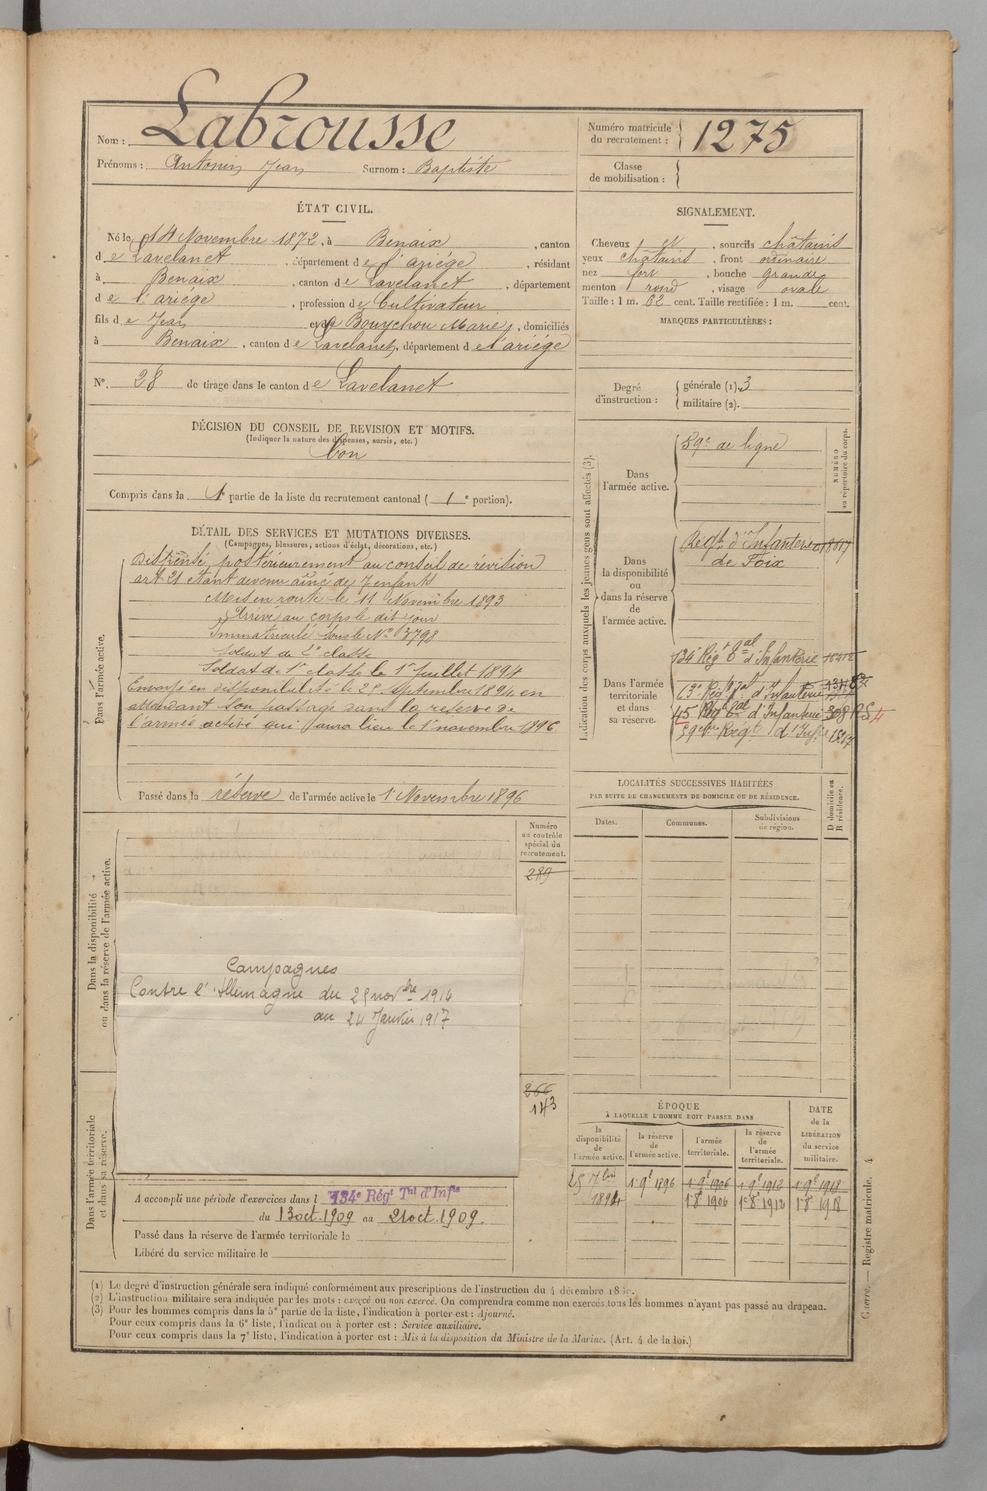 Nom : Labrousse
Prénoms : Antonin Jean Surnom : Baptiste
Numéro matricule du recrutement : 1275
Classe de mobilisation :
ÉTAT CIVIL.
Né le 14 Novembre 1872, à Benaix, canton
de Lavelanet, département de l'ariége, résidant
à Benaix, canton de Lavelanet, département
de l'ariége, profession de Cultivateur
fils de Jean et de Bouychou Marie, domiciliés
à Benaix, canton de Lavelanet, département de l'ariége
N°. 28 de tirage dans le canton de Lavelanet
SIGNALEMENT.
Cheveux et, sourcils châtains
yeux châtains, front ordinaire
nez fort, bouche grande
menton rond, visage ovale
Taille : 1 m. 62 cent. Taille rectifiée : 1 m. cent.
MARQUES PARTICULIÈRES :
Degré d'instruction :
générale (1). 3
militaire (2).
DÉCISION DU CONSEIL DE REVISION ET MOTIFS.
(Indiquer la nature des dispenses, sursis, etc.)
bon
Compris dans la 1e partie de la liste du recrutement cantonal ( 1e portion).
DÉTAIL DES SERVICES ET MUTATIONS DIVERSES.
(Campagnes, blessures, actions d'éclat, décorations, etc.)
Dans l'armée active.
Dispensé postérieurement au conseil de révision
art 21 étant devenu aîné de 7 enfants
Mis en route le 11 Novembre 1893
Arrivé au corps le dit jour
Immatriculé sous le N° 3798
Soldat de 2e classe
Soldat de 1e classe le 1er Juillet 1894
Envoyé en disponibilité le 25 Septembre 1894 en
attendant son passage dans la réserve de
l'armée active qui aura lieu le 1er novembre 1896
Passé dans la réserve de l'armée active le 1 Novembre 1896
Indication des corps auxquels les jeunes gens sont affectés (3).
NUMÉRO au répertoire du corps.
Dans l'armée active.
59e de ligne
Dans la disponibilité ou dans la réserve de l'armée active.
Regt d'Infanterie
de Foix
Dans l'armée territoriale et dans sa réserve.
134e Régt Tal d'Infanterie
Régt Tal d'Infanterie
45 Régt Tal d'Infanterie
59e Régt d'Infie
LOCALITÉS SUCCESSIVES HABITÉES
PAR SUITE DE CHANGEMENTS DE DOMICILE OU DE RÉSIDENCE.
Dates. Communes. Subdivisions de région.
D domicile ou R résidence.
Dans la disponibilité ou dans la réserve de l'armée active.
Numéro au contrôle spécial du recrutement.
289
Campagnes
Contre l'Allemagne du 25 novbre 1914
au 24 Janvier 1917
Dans l'armée territoriale et dans sa réserve.
266
143
A accompli une période d'exercices dans l 134e Régt Tal d'Infie
du 13 oct. 1909 au 21 oct. 1909.
Passé dans la réserve de l'armée territoriale le
Libéré du service militaire le
ÉPOQUE
À LAQUELLE L'HOMME DOIT PASSER DANS
la disponibilité de l'armée active.
la réserve de l'armée active.
l'armée territoriale.
la réserve de l'armée territoriale.
DATE de la LIBÉRATION du service militaire.
25 7bre 1894
1 9e 1896
1 9e 1906
1 9e 1912
1 9e 1918
1 8e 1906
1 8e 1912
1 8e 1918
(1) Le degré d'instruction générale sera indiqué conformément aux prescriptions de l'instruction du 4 décembre
(2) L'instruction militaire sera indiquée par les mots : exercé ou non exercé. On comprendra comme non exercés tous les hommes n'ayant pas passé au drapeau.
(3) Pour les hommes compris dans la 5e partie de la liste, l'indication à porter est : Ajourné.
Pour ceux compris dans la 6e liste, l'indication à porter est : Service auxiliaire.
Pour ceux compris dans la 7e liste, l'indication à porter est : Mis à la disposition du Ministre de la Marine. (Art. 4 de la loi.)
Guerre. — Registre matricule. 4